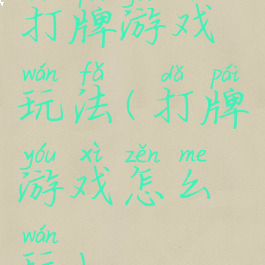 打牌游戏
wán fǎ dǎ pái
玩法(打牌
yóu xì zěn me
游戏怎么
wán
玩)